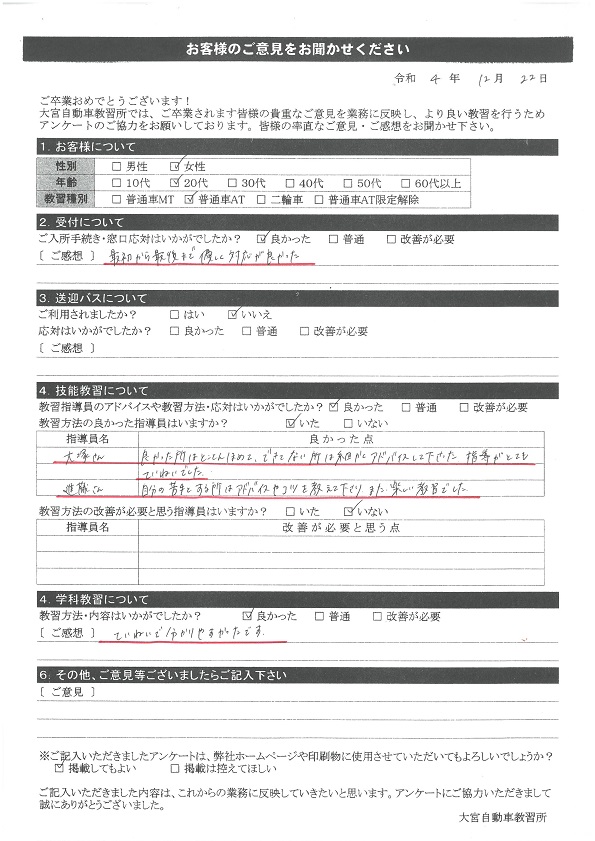 お客様のご意見をお聞かせください
令和 4 年 12 月 22 日
ご卒業おめでとうございます！
大宮自動車教習所では、ご卒業されます皆様の貴重なご意見を業務に反映し、より良い教習を行うため
アンケートのご協力をお願いしております。皆様の率直なご意見・ご感想をお聞かせ下さい。
1. お客様について
性別 □ 男性 ☑ 女性
年齢 □ 10代 ☑ 20代 □ 30代 □ 40代 □ 50代 □ 60代以上
教習種別 □ 普通車MT ☑ 普通車AT □ 二輪車 □ 普通車AT限定解除
2. 受付について
ご入所手続き・窓口応対はいかがでしたか？ ☑ 良かった □ 普通 □ 改善が必要
［ ご感想 ］ 最初から最後まで優しく対応が良かった
3. 送迎バスについて
ご利用されましたか？ □ はい ☑ いいえ
応対はいかがでしたか？ □ 良かった □ 普通 □ 改善が必要
［ ご感想 ］
4. 技能教習について
教習指導員のアドバイスや教習方法・応対はいかがでしたか？ ☑ 良かった □ 普通 □ 改善が必要
教習方法の良かった指導員はいますか？ ☑ いた □ いない
指導員名 良かった点
大塚さん 良かった所はとことんほめて、できてない所は細かくアドバイスして下さった 指導がとても
ていねいでした
進藤さん 自分の苦手とする所はアドバイスやコツを教えて下さり また、楽しい教習でした
教習方法の改善が必要と思う指導員はいますか？ □ いた ☑ いない
指導員名 改善が必要と思う点
4. 学科教習について
教習方法・内容はいかがでしたか？ ☑ 良かった □ 普通 □ 改善が必要
［ ご感想 ］ ていねいで分かりやすかったです.
6. その他、ご意見等ございましたらご記入下さい
［ ご意見 ］
※ご記入いただきましたアンケートは、弊社ホームページや印刷物に使用させていただいてもよろしいでしょうか？
☑ 掲載してもよい □ 掲載は控えてほしい
ご記入いただきました内容は、これからの業務に反映していきたいと思います。アンケートにご協力いただきまして
誠にありがとうございました。
大宮自動車教習所